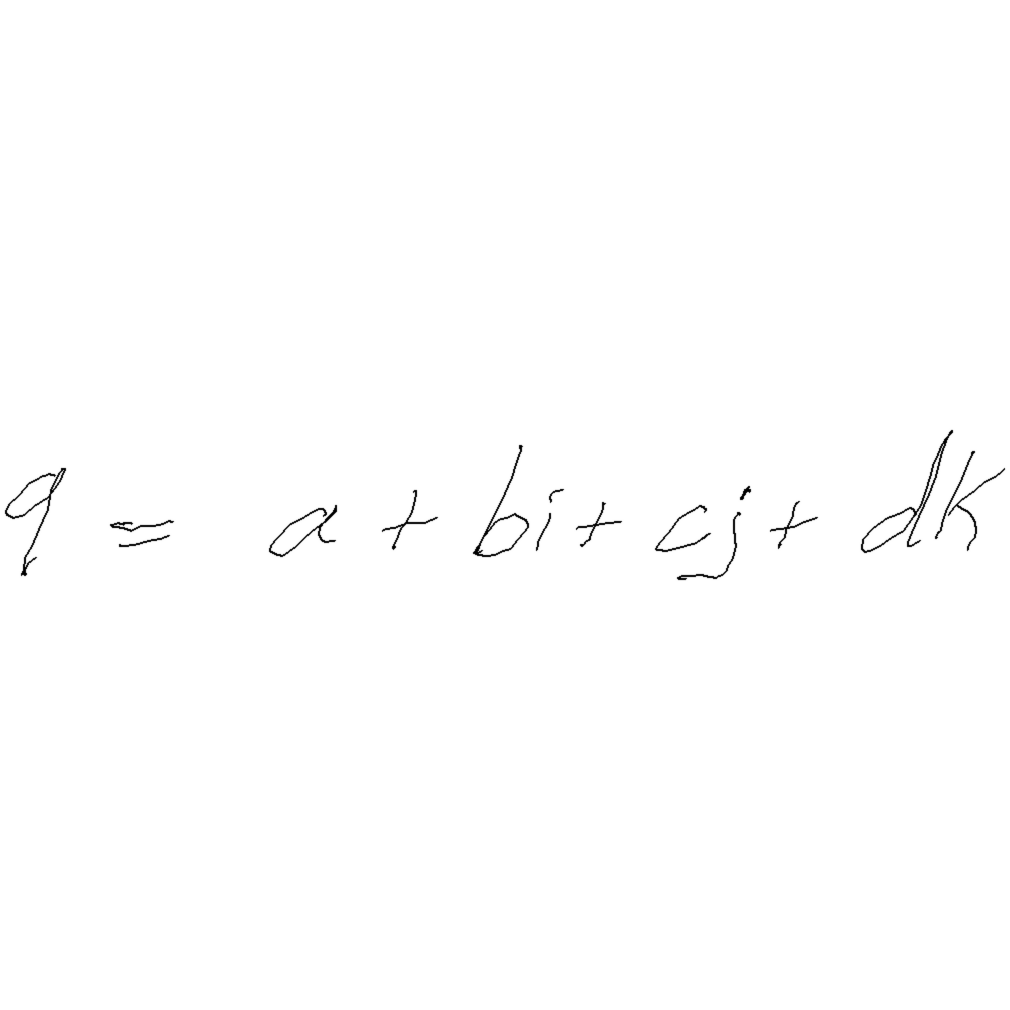 q = a + bi + cj + dk